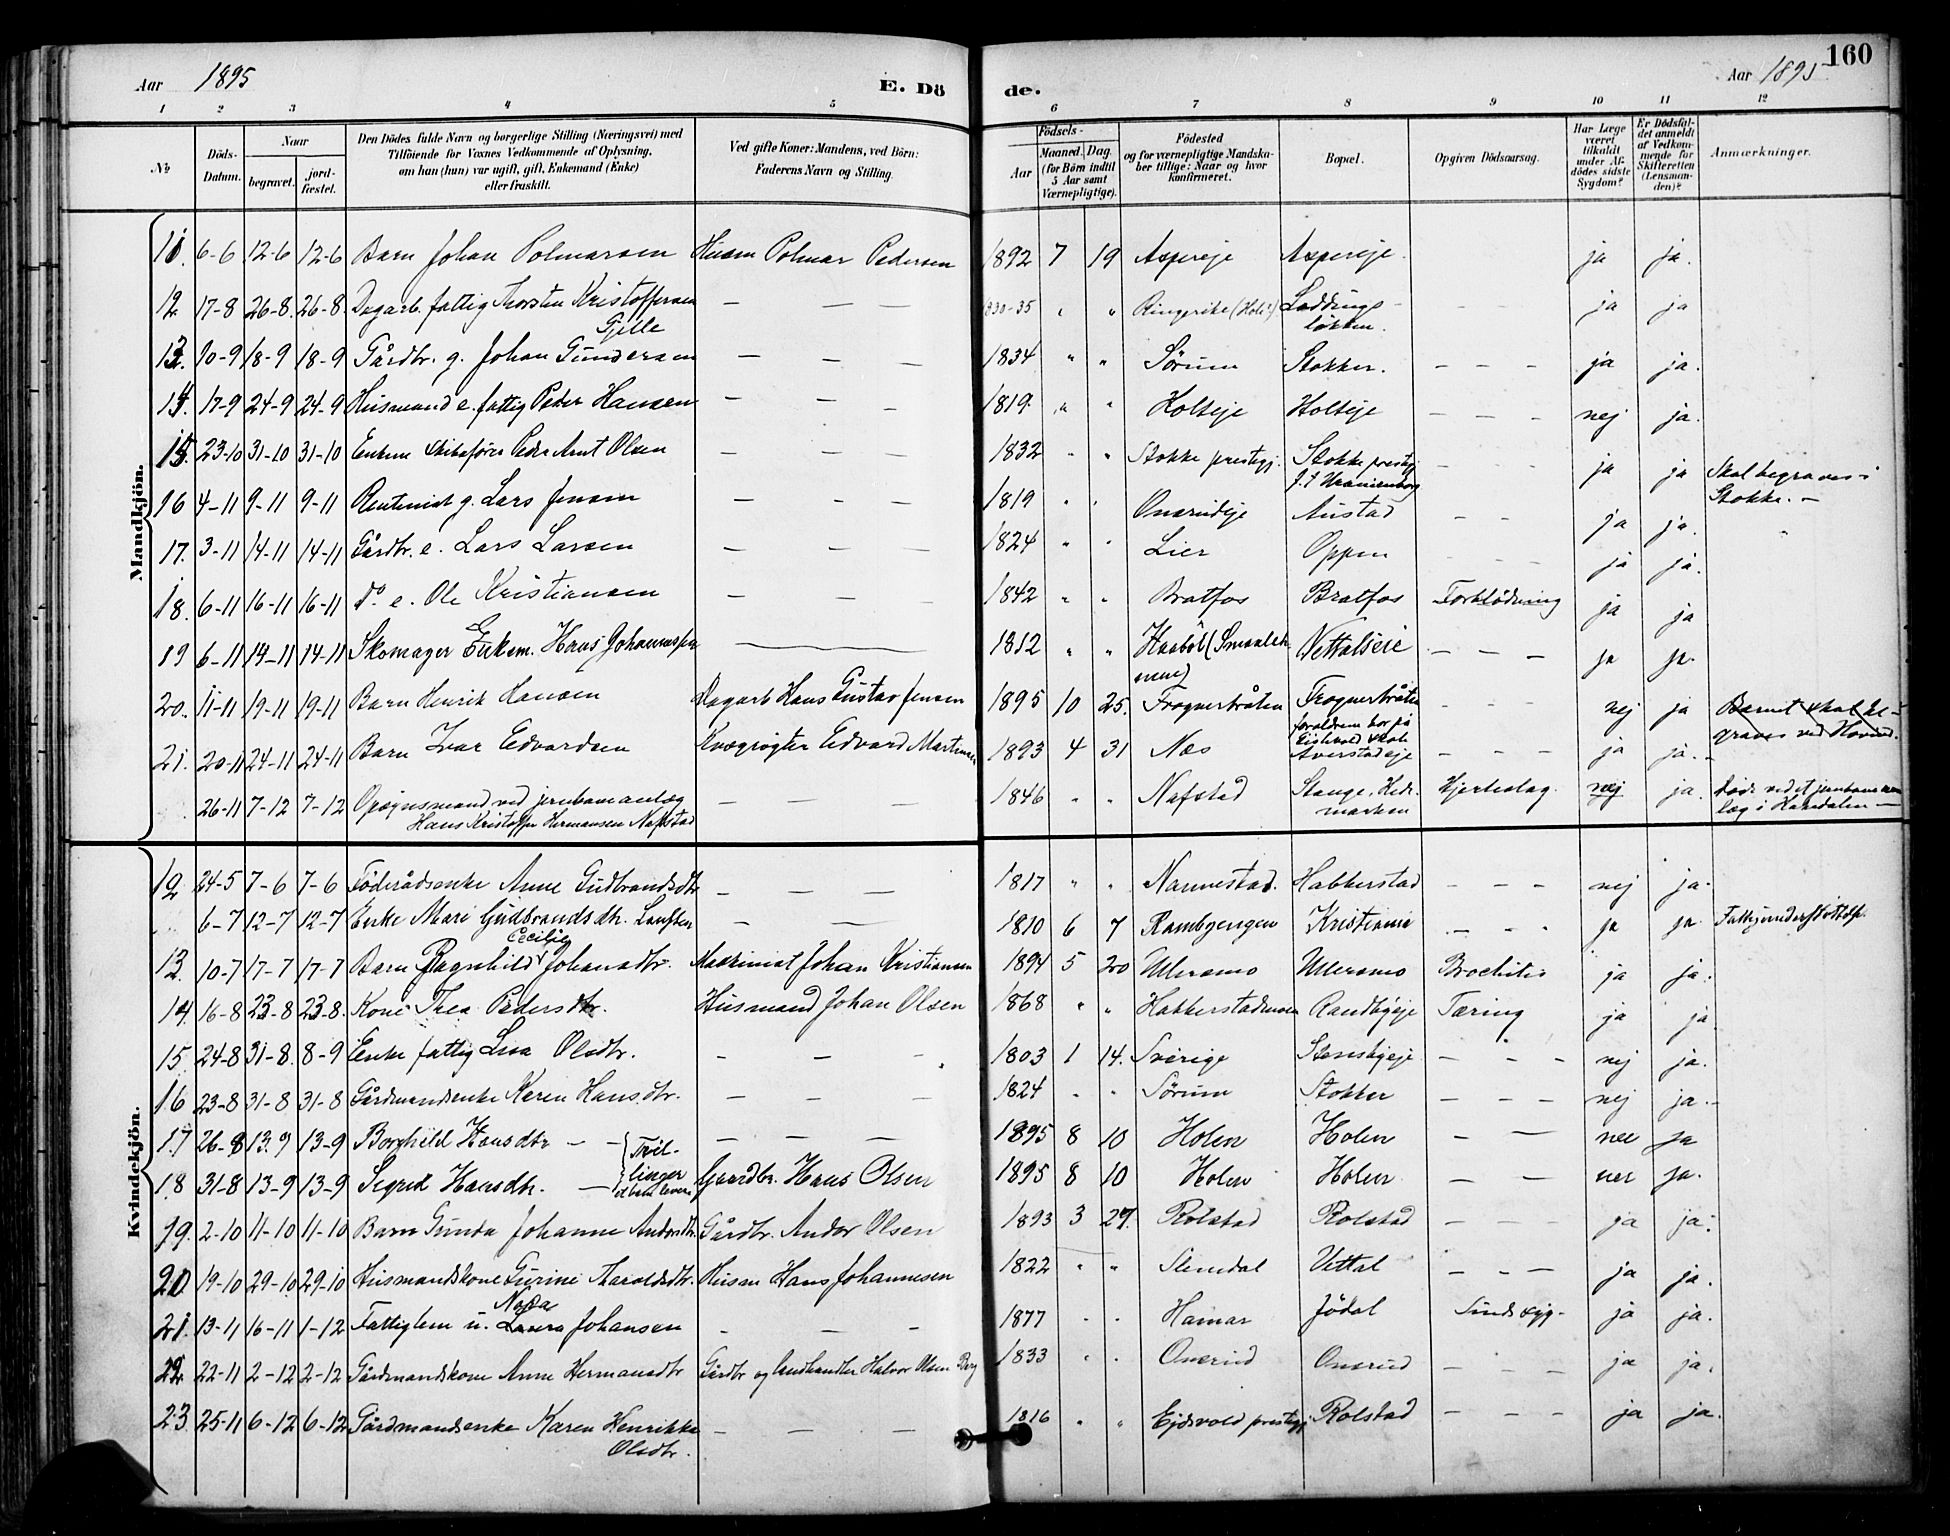 Aar 1895 E. Dö de. Aar 1895 160
1 2 3 4 5 6 7 8 9 10 11 12
No Döds-Datum. Naar begravet. jord-fæstet. Den Dödes fulde Navn og borgerlige Stilling (Næringsvei) med Tilföiende for Voxnes Vedkommende af Oplysning, om han (hun) var ugift, gift, Enkemand (Enke) eller fraskilt. Ved gifte Koner: Mandens, ved Börn: Faderens Navn og Stilling. Födsels- Aar Maaned. Dag. (for Börn indtil 5 Aar samt Værnepligtige). Födested og for værnepligtige Mandskaber tillige: Naar og hvor konfirmeret. Bopæl. Opgiven Dödsaarsag. Har Læge været tilkaldt under Afdödes sidste Sygdom? Er Dödsfaldet anmeldt af Vedkommende for Skifteretten (Lensmanden)? Anmærkninger.
Mandkjön.
11. 6-6 12-6 12-6 Barn Johan Polmarsen Husm Polmar Pedersen 1892 7 19 Aspereje Aspereje. ja ja.
12 17-8 26-8. 26-8. Dagarb. fattig Thorsten Kristoffersen Gjelle — — — 1830-35 " " Ringerike (Hole?) Laddings-løkken. - - - ja ja
13. 10-9 18-9 18-9 Gårdbr. g. Johan Gundersen — — — 1834 " " Sørum Stokker. - - - ja ja.
14. 17-9 24-9 24-9 Husmand e. fattig Peder Hansen — — — 1819. " " Holteje Holteje — — — nej ja.
15. 23-10 31-10 31-10 Enkem Skibsfører Peder Arnt Olsen — — — 1832 " " Stokke prestegj. Stokke prestegj. - - - ja ja Skal begraves i Stokke. —
16 4-11 9-11 9-11 Rentenist g. Lars Jensen — — — 1819 " " Onsrudeje Austad - - ja ja.
17. 3-11 14-11 14-11 Gårdbr. e. Lars Larsen — — — 1824 " " Lier Oppen - - - ja ja.
18. 6-11 16-11 16-11 Do. e. Ole Kristiansen — — — 1842 " " Bratfos Bratfos Forblödning ja ja
19 6-11 14-11 14-11 Skomager Enkem. Hans Johannessen — 1812 " " Haaböl (Smaalenene) Vettalseie - — — ja ja.
20. 11-11 19-11 19-11 Barn Henrik Hansen Dagarb Hans Gustav Jensen 1895 10 25. Frognerbråten Frognerbråten - - - nej ja Barnet skal begraves ved Hovind.
21. 20-11 24-11 24-11 Barn Ivar Edvardsen Kvægrøgter Edvard Martinsen 1893 4 31 Næs Averstadeje - — — ja ja. -
26-11 7-12 7-12 Opsynsmand ved jernbaneanlæg — — — 1846 " " Nafstad Stange, Hedemarken Hjerteslag. nej ja. Døde ved et jernbaneanlæg i Hakadalen —
Hans Kristoffer Hermansen Nafstad
Kvindekjön.
12 24-5 7-6 7-6 Föderådsenke Anne Gudbrandsdtr — — — 1817 " " Nannestad. Habberstad - - - nej ja.
6-7 12-7 12-7 Enke Mari Gudbrandsdtr. — — 1810 6 7 Rambyengen Kristiania - - - ja ja.
13 10-7 17-7 17-7 Barn Ragnhild Cecilie Johansdtr. Maskinist Johan Kristiansen 1894 5 20 Ulleramo Ulleramo Brochitis ja ja.
14. 16-8 23-8 23-8. Kone Thea Pedersdtr. Husmand Johan Olsen 1868 " " Habberstadmoen Randbyeje Tæring ja ja
15. 24-8 31-8. 8-9 Enke fattig Lisa Olsdtr. - — - 1803 1 14. Sverige Stensbyeje — - - nej ja.
16 23-8 31-8 31-8 Gårdmandsenke Karen Hansdtr. — — — 1824 " " Sørum Stokker — — — nej ja. -
17 26-8 13.9 13-9 Borghild Hansdtr — — — — — 1895 8 10 Holen Holen — — nee ja
Tvillinger
18 31-8 13-9 13-9 Sigrid Hansdtr. — Gaardbr. Hans Olsen 1895 8 10 Holen Holen — — nei ja.
19. 2-10 11-10 11-10 Barn Gunda Johanne Andorsdtr. Gårdbr. Andor Olsen 1893 3 27. Rolstad Rolstad — — — ja ja.
20 19-10 29-10 29-10 Husmandskone Gurine Haraldsdtr. Husm Hans Johannesen 1822 " " Slemdal Vettal — - — ja ja.
21. 13-11 16-11 1-12 Fattiglem u. Nora Johansen - — - 1877 " " Hamar Jödal Sindssyg - ja ja.
22 22-11 2-12 2-12 Gårdmandskone Anne Hermansdtr Gårdbr og landhandler Halvor Olsen Berg 1833 " " Onsrud Onsrud — — — ja ja.
23 25-11 6-12 6-12 Gårdmandsenke Karen Henrikke Olsdtr. — — — 1816 " " Ejdsvold prestegj. Rolstad — - - ja ja.